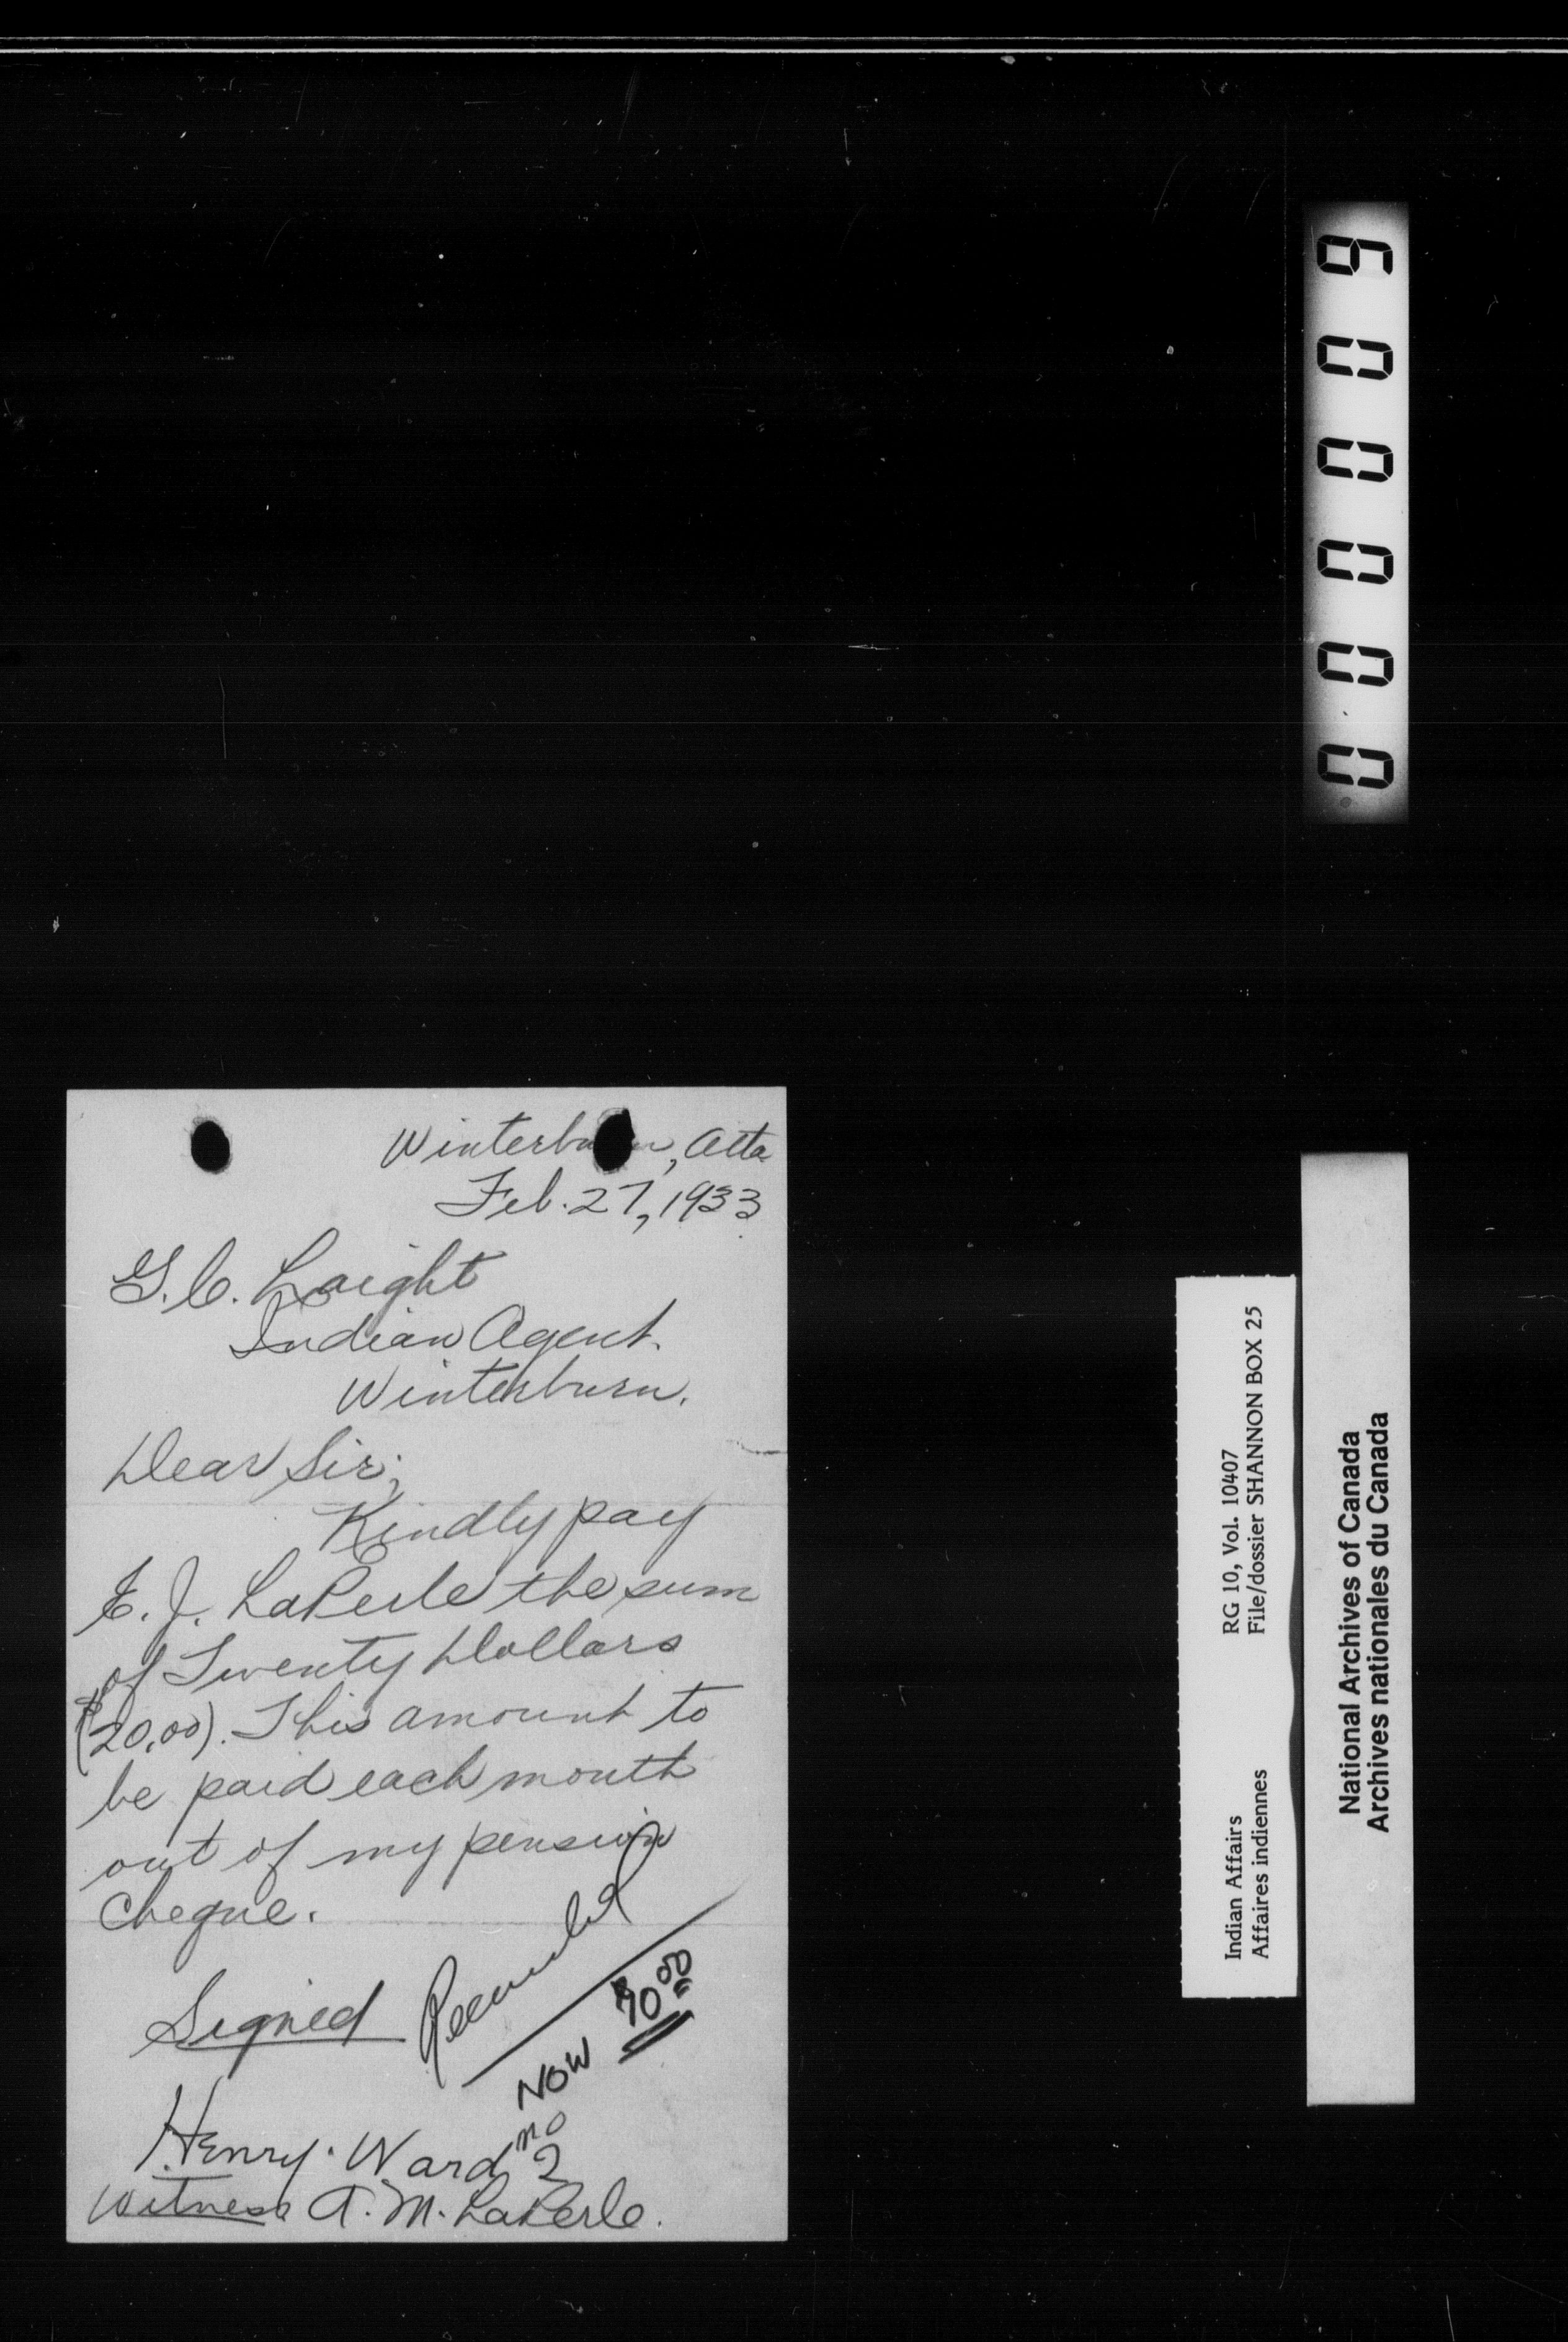 Winterburn, Alta
Feb. 27, 1933
G. C. Laight
Indian Agent.
Winterburn.
Dear Sir;
Kindly pay
E. J. LaPerle the sum
of Twenty Dollars
($20.00). This amount to
be paid each month
out of my pension
cheque.
Signed
NOW
Henry. Ward no 2
Witness A. M. LaPerle.
000009
Indian Affairs RG 10, Vol. 10407
Affaires indiennes File/dossier SHANNON BOX 25
National Archives of Canada
Archives nationales du Canada